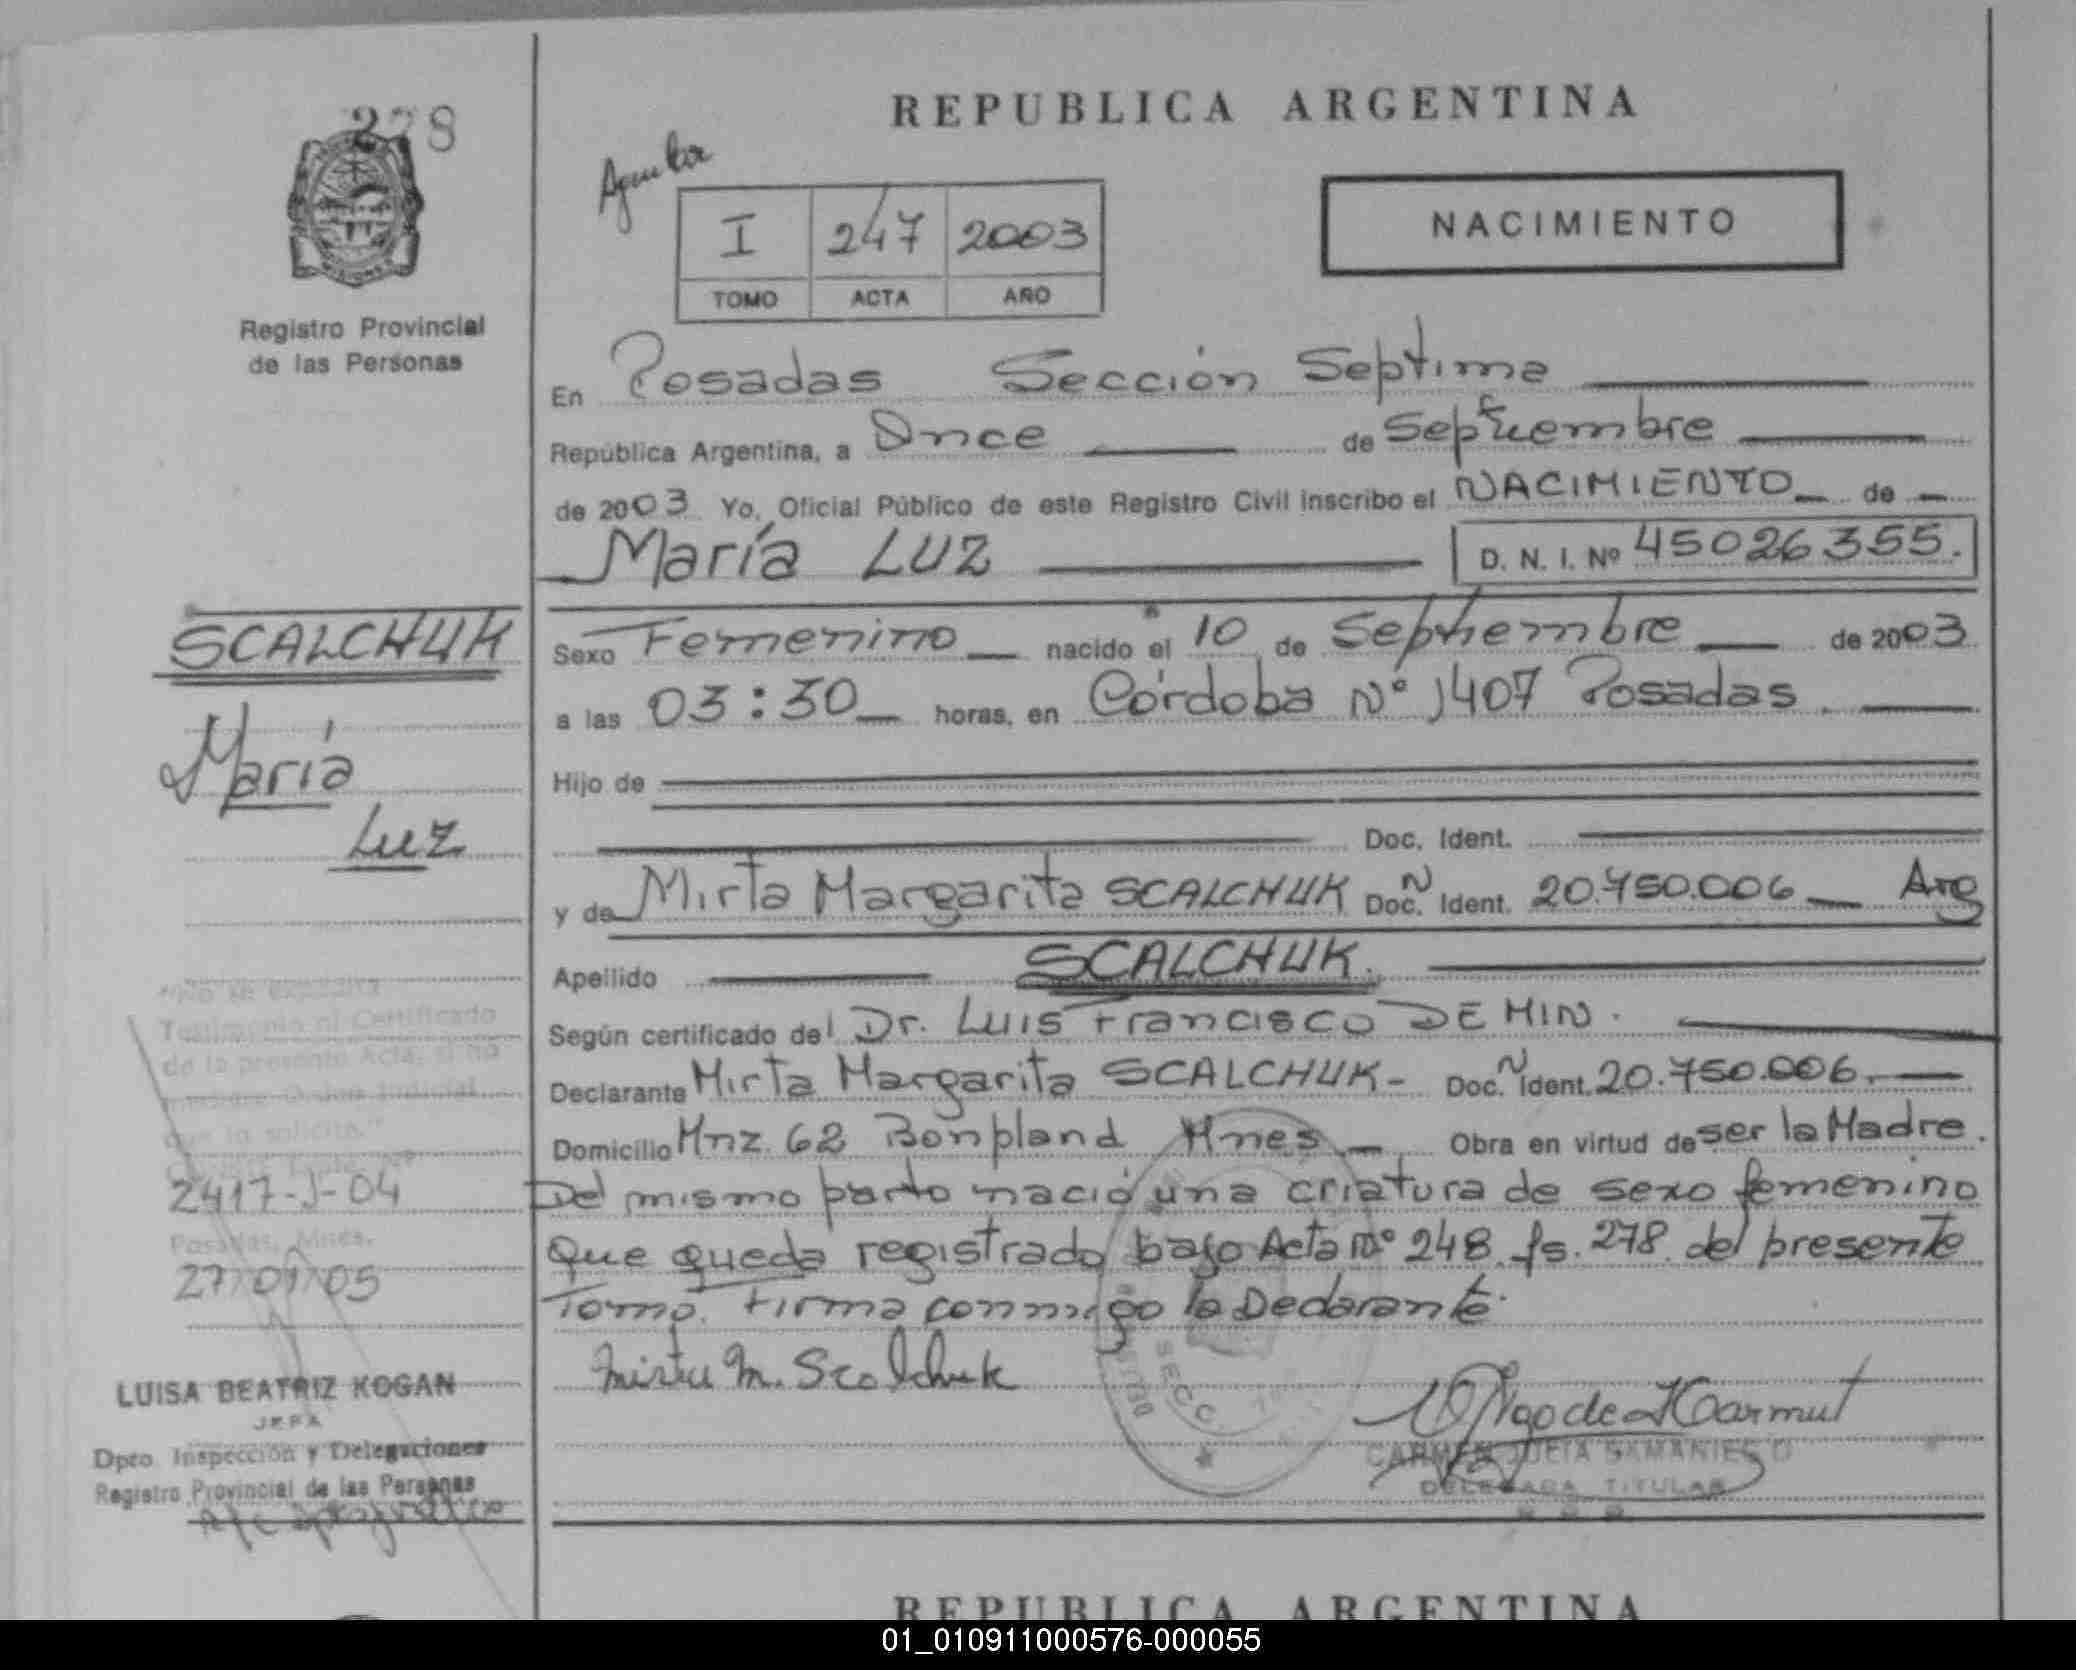 278
REPUBLICA ARGENTINA
I 247 2003
TOMO ACTA AÑO
NACIMIENTO
MISIONES
Registro Provincial
de las Personas
En Posadas Sección Septima
República Argentina, a Once de Septiembre
de 2003 Yo, Oficial Público de este Registro Civil inscribo el NACIMIENTO de
María LUZ D. N. I. Nº 45026355.
SCALCHUK
María
Luz
Sexo Femenino nacido el 10 de Septiembre de 2003
a las 03:30 horas, en Córdoba Nº 1407 Posadas
Hijo de
Doc. Ident.
y de Mirta Margarita SCALCHUK Doc. N Ident. 20.750.006 Arg
Apellido SCALCHUK.
Según certificado del Dr. Luis Francisco DEMIN.
Declarante Mirta Margarita SCALCHUK- Doc. N Ident. 20.750.006.
Domicilio Mnz 62 Bonpland Mnes Obra en virtud de ser la Madre.
Del mismo parto nació una criatura de sexo femenino
Que queda registrado bajo Acta Nº 248 fs. 278 del presente
Tomo. Firma conmigo la Declarante.
Mirta M. Scalchuk
"No se expedirá
Testimonio ni Certificado
de la presente Acta, si no
Orden Judicial
que lo solicite."
2417-J-04
Posadas, Mnes.
27/01/05
LUISA BEATRIZ KOGAN
JEFA
Dpto. Inspección y Delegaciones
Registro Provincial de las Personas
SECC.
CARMEN JULIA SAMANIEGO
DELEGADA TITULAR
REPUBLICA ARGENTINA
01_010911000576-000055